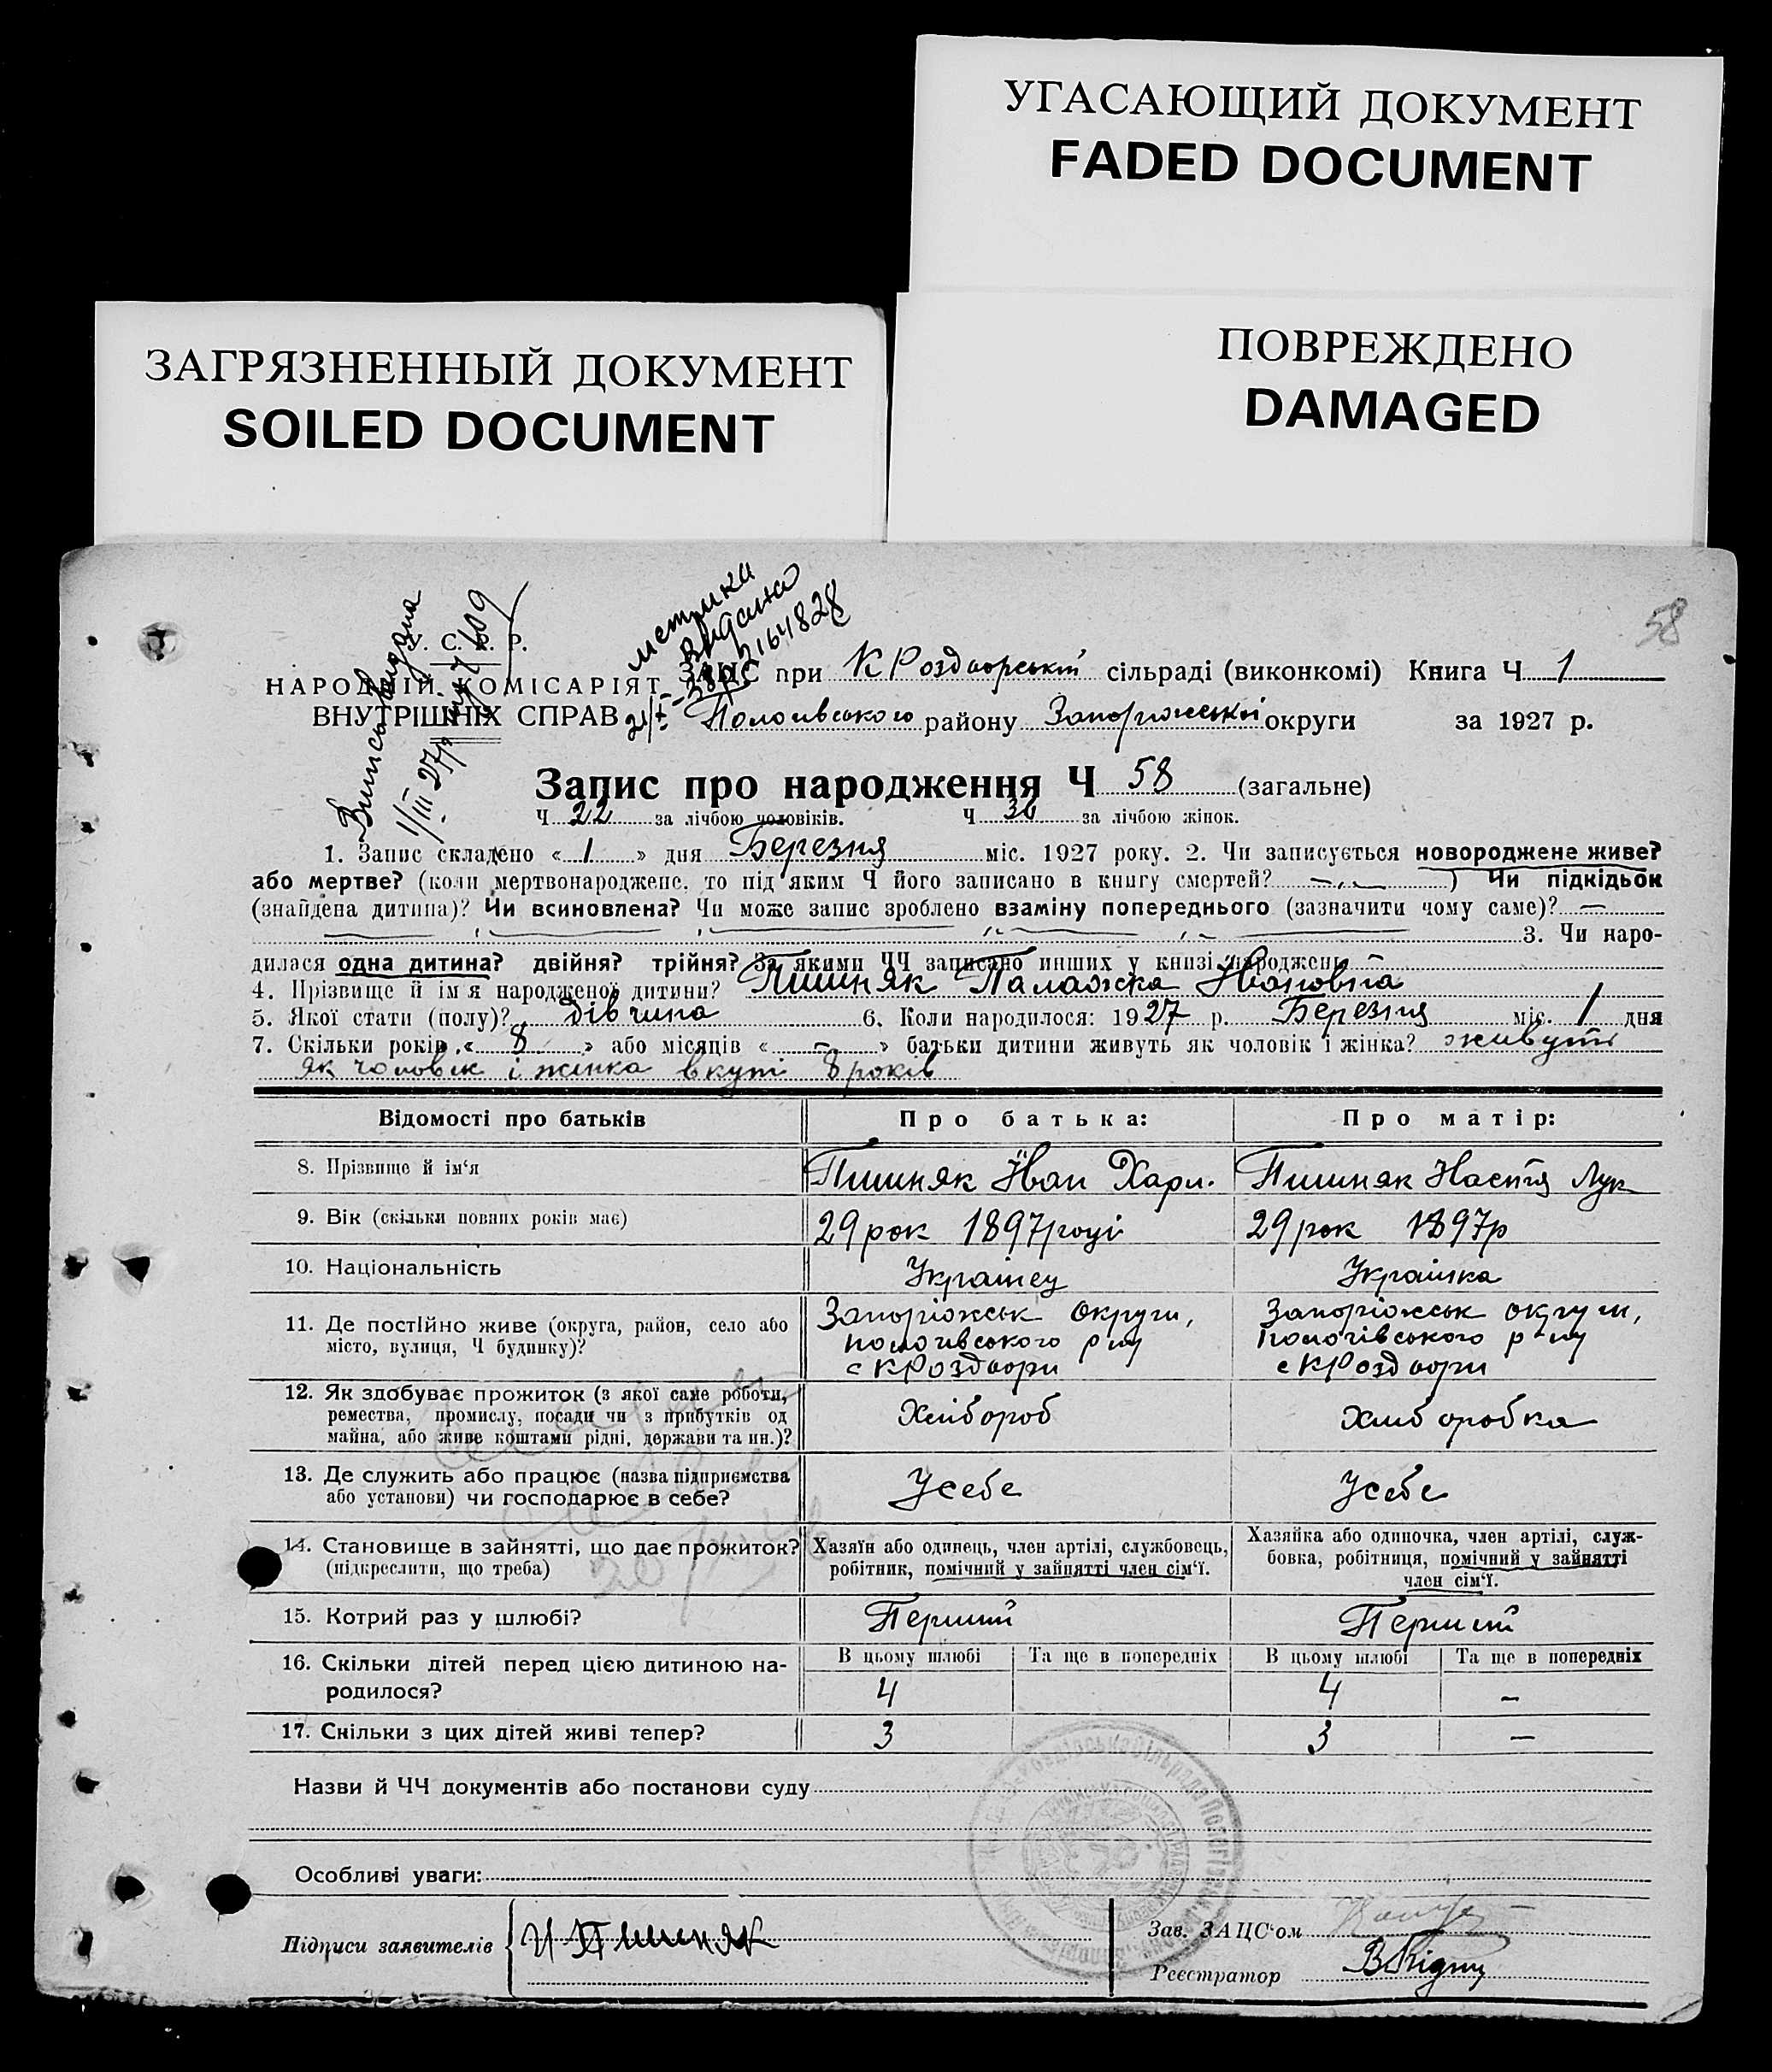 УГАСАЮЩИЙ ДОКУМЕНТ
FADED DOCUMENT
ЗАГРЯЗНЕННЫЙ ДОКУМЕНТ
SOILED DOCUMENT
ПОВРЕЖДЕНО
DAMAGED
58
Випись видана
1/III 27р.
метрика
видана
У. С. Р. Р.
НАРОДНІЙ КОМІСАРІЯТ
ВНУТРІШНІХ СПРАВ
ЗАЦС при К Роздорській сільраді (виконкомі) Книга Ч 1
Пологівського району Запоріжської округи за 1927 р.
Запис про народження Ч 58 (загальне)
Ч 22 за лічбою чоловіків. Ч 36 за лічбою жінок.
1. Запис складено « 1 » дня Березня міс. 1927 року. 2. Чи записується новороджене живе?
або мертве? (коли мертвонароджене, то під яким Ч його записано в книгу смертей? ) Чи підкідьок
(знайдена дитина)? Чи всиновлена? Чи може запис зроблено взаміну попереднього (зазначити чому саме)? —
3. Чи наро-
дилася одна дитина? двійня? трійня? За якими ЧЧ записано инших у книзі народжень —
4. Прізвище й ім'я народженої дитини? Пишняк Палажка Івановна
5. Якої стати (полу)? Дівчина 6. Коли народилося: 1927 р. Березня міс. 1 дня
7. Скільки років « 8 » або місяців « — » батьки дитини живуть як чоловік і жінка? живуть
як чоловік і жінка вкупі 8 років
Відомості про батьків Про батька: Про матір:
8. Прізвище й ім'я Пишняк Іван Харл. Пишняк Настя Лук
9. Вік (скільки повних років має) 29 рок 1897 році 29 рок 1897р
10. Національність Українец Українка
11. Де постійно живе (округа, район, село або місто, вулиця, Ч будинку)?
Запоріжськ округи, Запоріжськ округи,
пологивського р ну пологівського р ну
с К Роздори с К Роздори
12. Як здобуває прожиток (з якої саме роботи,
ремества, промислу, посади чи з прибутків од
майна, або живе коштами рідні, держави та ин.)?
Хліб ороб Хліб оробка
13. Де служить або працює (назва підприємства
або установи) чи господарює в себе?
Усебе Усебе
14. Становище в зайнятті, що дає прожиток?
(підкреслити, що треба)
Хазяїн або одинець, член артілі, службовець,
робітник, помічний у зайнятті член сім'ї.
Хазяйка або одиночка, член артілі, служ-
бовка, робітниця, помічний у зайнятті
член сім'ї.
15. Котрий раз у шлюбі? Перший Перший
16. Скільки дітей перед цією дитиною на-
родилося?
В цьому шлюбі Та ще в попередніх В цьому шлюбі Та ще в попередніх
4 4 —
17. Скільки з цих дітей живі тепер? 3 3 —
Назви й ЧЧ документів або постанови суду
Особливі уваги:
Підписи заявителів И Пишняк
Зав. ЗАЦС'ом
Реєстратор